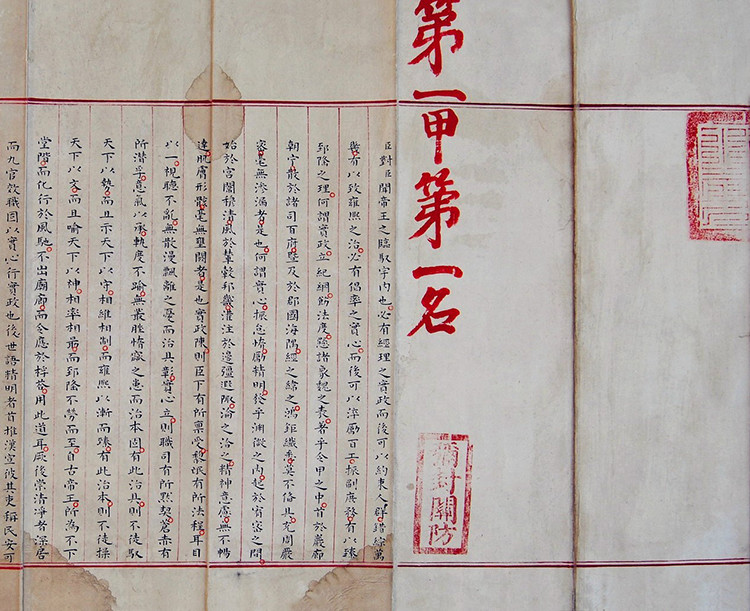 第一甲第一名
彌封關防
臣對臣聞帝王之臨馭宇內也必有經理之實政而後可以約束人群錯綜萬
幾有以致雍熙之治必有倡率之實心而後可以淬勵百工振刷庶務有以臻
郅隆之理何謂實政立紀綱飭法度懸諸象魏之表著乎令甲之中首於巖廊
朝寧散於諸司百府暨及於郡國海隅經之緯之鴻鉅纖悉莫不備具充周嚴
密毫無滲漏者是也何謂實心振怠惰勵精明發乎淵微之內起於宥密之間
始於宮闈穆清風於輦轂邦畿灌注於邊疆遐陬淪之洽之精神意慮無不暢
達肌膚形骸毫無壅閼者是也實政陳則臣下有所稟受黎氓有所法程耳目
以一視聽不亂無散漫飄離之憂而治具彰實心立則職司有所默契蒼赤有
所潛孚意氣以承軌度不踰無叢脞惰窳之患而治本固有此治具則不徒馭
天下以勢而且示天下以守相維相制而雍熙以漸而臻有此治本則不徒操
天下以文而且喻天下以神相率相勗而郅隆不勞而至自古帝王所為不下
堂階而化行於風馳不出廟廊而令應於桴答用此道耳厥後崇清淨者深居
而九官效職固以實心行實政也後世語精明者首推漢宣彼其吏稱民安可